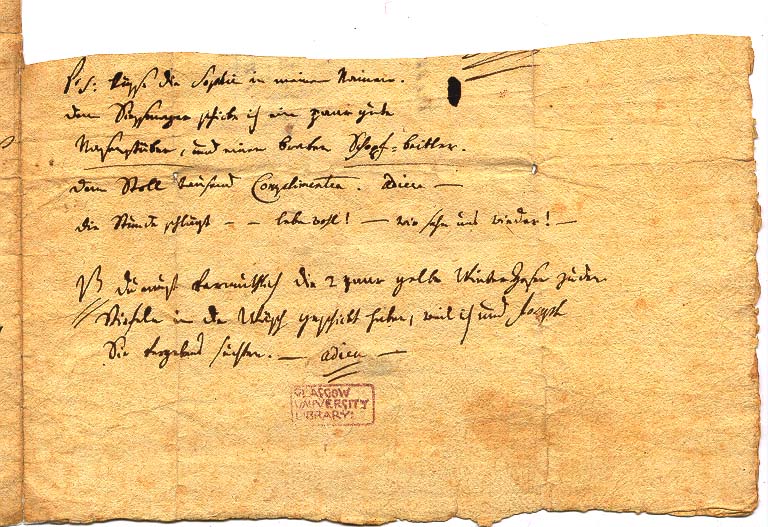 P.S: küsse die Sophie in meinem Namen.
dem Siessmayer schicke ich ein paar gute
Nasenstüber, und einen braben Schopf=beitler.
dem Stoll tausend Complimente. adieu —
die Stunde schlägt – – lebe wohl! — wir sehen uns wieder! —
NB Du musst vermuthlich die 2 paar gelbe Winterhosen zu den
Stiefeln in die Wäsch geschickt haben, weil ich und Joseph
Sie vergebens suchten. — adieu —
GLASGOW
UNIVERSITY
LIBRARY: